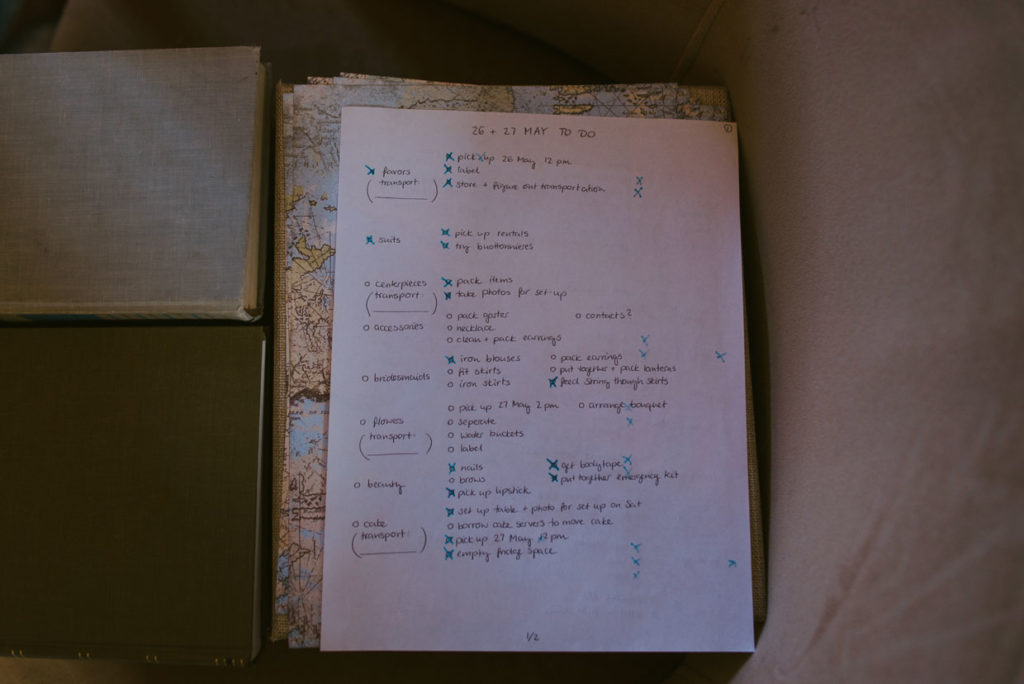 26 + 27 MAY TO DO
1
x pick up 26 May 12 pm
x favors
x label
(transport: ______)
x store + figure out transportation
x suits
x pick up rentals
x try buottonnieres
o centerpieces
(transport: ______)
x pack items
x take photos for set-up
o accessories
o pack garter o contacts?
o necklace
o clean + pack earrings
o bridesmaids
x iron blouses o pack earrings
o fit skirts o put together + pack lanterns
o iron skirts x feed string though skirts
o flowers
(transport: ______)
o pick up 27 May 2 pm o arrange bouquet
o seperate
o water buckets
o label
o beauty
x nails x get bodytape
o brows x put together emergency kit
x pick up lipstick
o cake
(transport: ______)
x set up table + photo for set up on Sat
o borrow cake servers to move cake
x pick up 27 May 12 pm
x empty fridge space
1/2